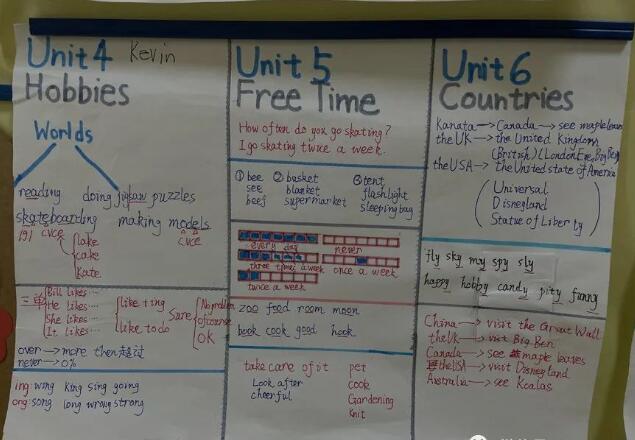 Unit 4 Kevin
Hobbies
Worlds
reading doing jigsaw puzzles
skateboarding making models
191 cvce cvce
lake
cake
kate
三单
Bill likes...
He likes...
She likes...
It likes...
like+ing
like to do
Sure
No problem
of course
OK
over→more then 超过
never→0%
ing: wing king sing going
ong: song long wrong strong
Unit 5
Free Time
How often do you go skating?
I go skating twice a week.
① bee ② basket ③ tent
see blanket flashlight
beef supermarket sleeping bag
every day never
three times a week once a week
twice a week
zoo food room moon
book cook good hook
take care of it
Look after
cheerful
pet
cook
Gardening
knit
Unit 6
Countries
Kanata→Canada→see maple leaves
the UK→the United Kingdom
(British) (London Eye, Big Ben)
the USA→the United state of America
Universal
Disneyland
Statue of Liberty
fly sky my spy sly
happy hobby candy pity funny
China→visit the Great Wall
the UK→visit Big Ben
Canada→see maple leaves
the USA→visit Disneyland
Australia→see Koalas